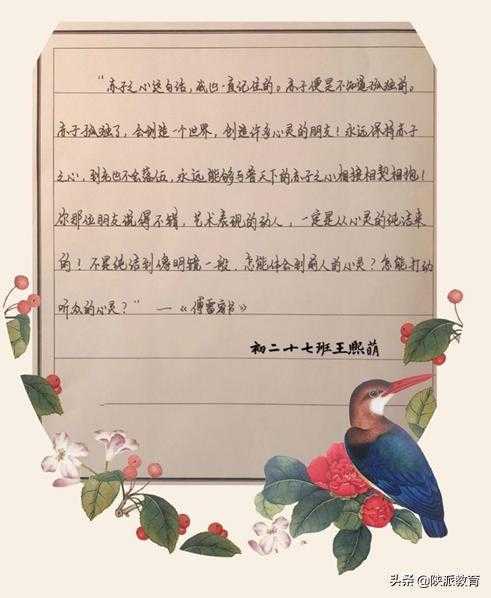 “赤子之心这句话，我也一直记住的。赤子便是不知道孤独的。
赤子孤独了，会创造一个世界，创造许多心灵的朋友！永远保持赤子
之心，到老也不会落伍，永远能够与普天下的赤子之心相接相契相抱！
你那位朋友说得不错，艺术表现的动人，一定是从心灵的纯洁来
的！不是纯洁到像明镜一般，怎能体会到前人的心灵？怎能打动
听众的心灵？” —《傅雷家书》
初二十七班王熙萌
头条 @陕派教育